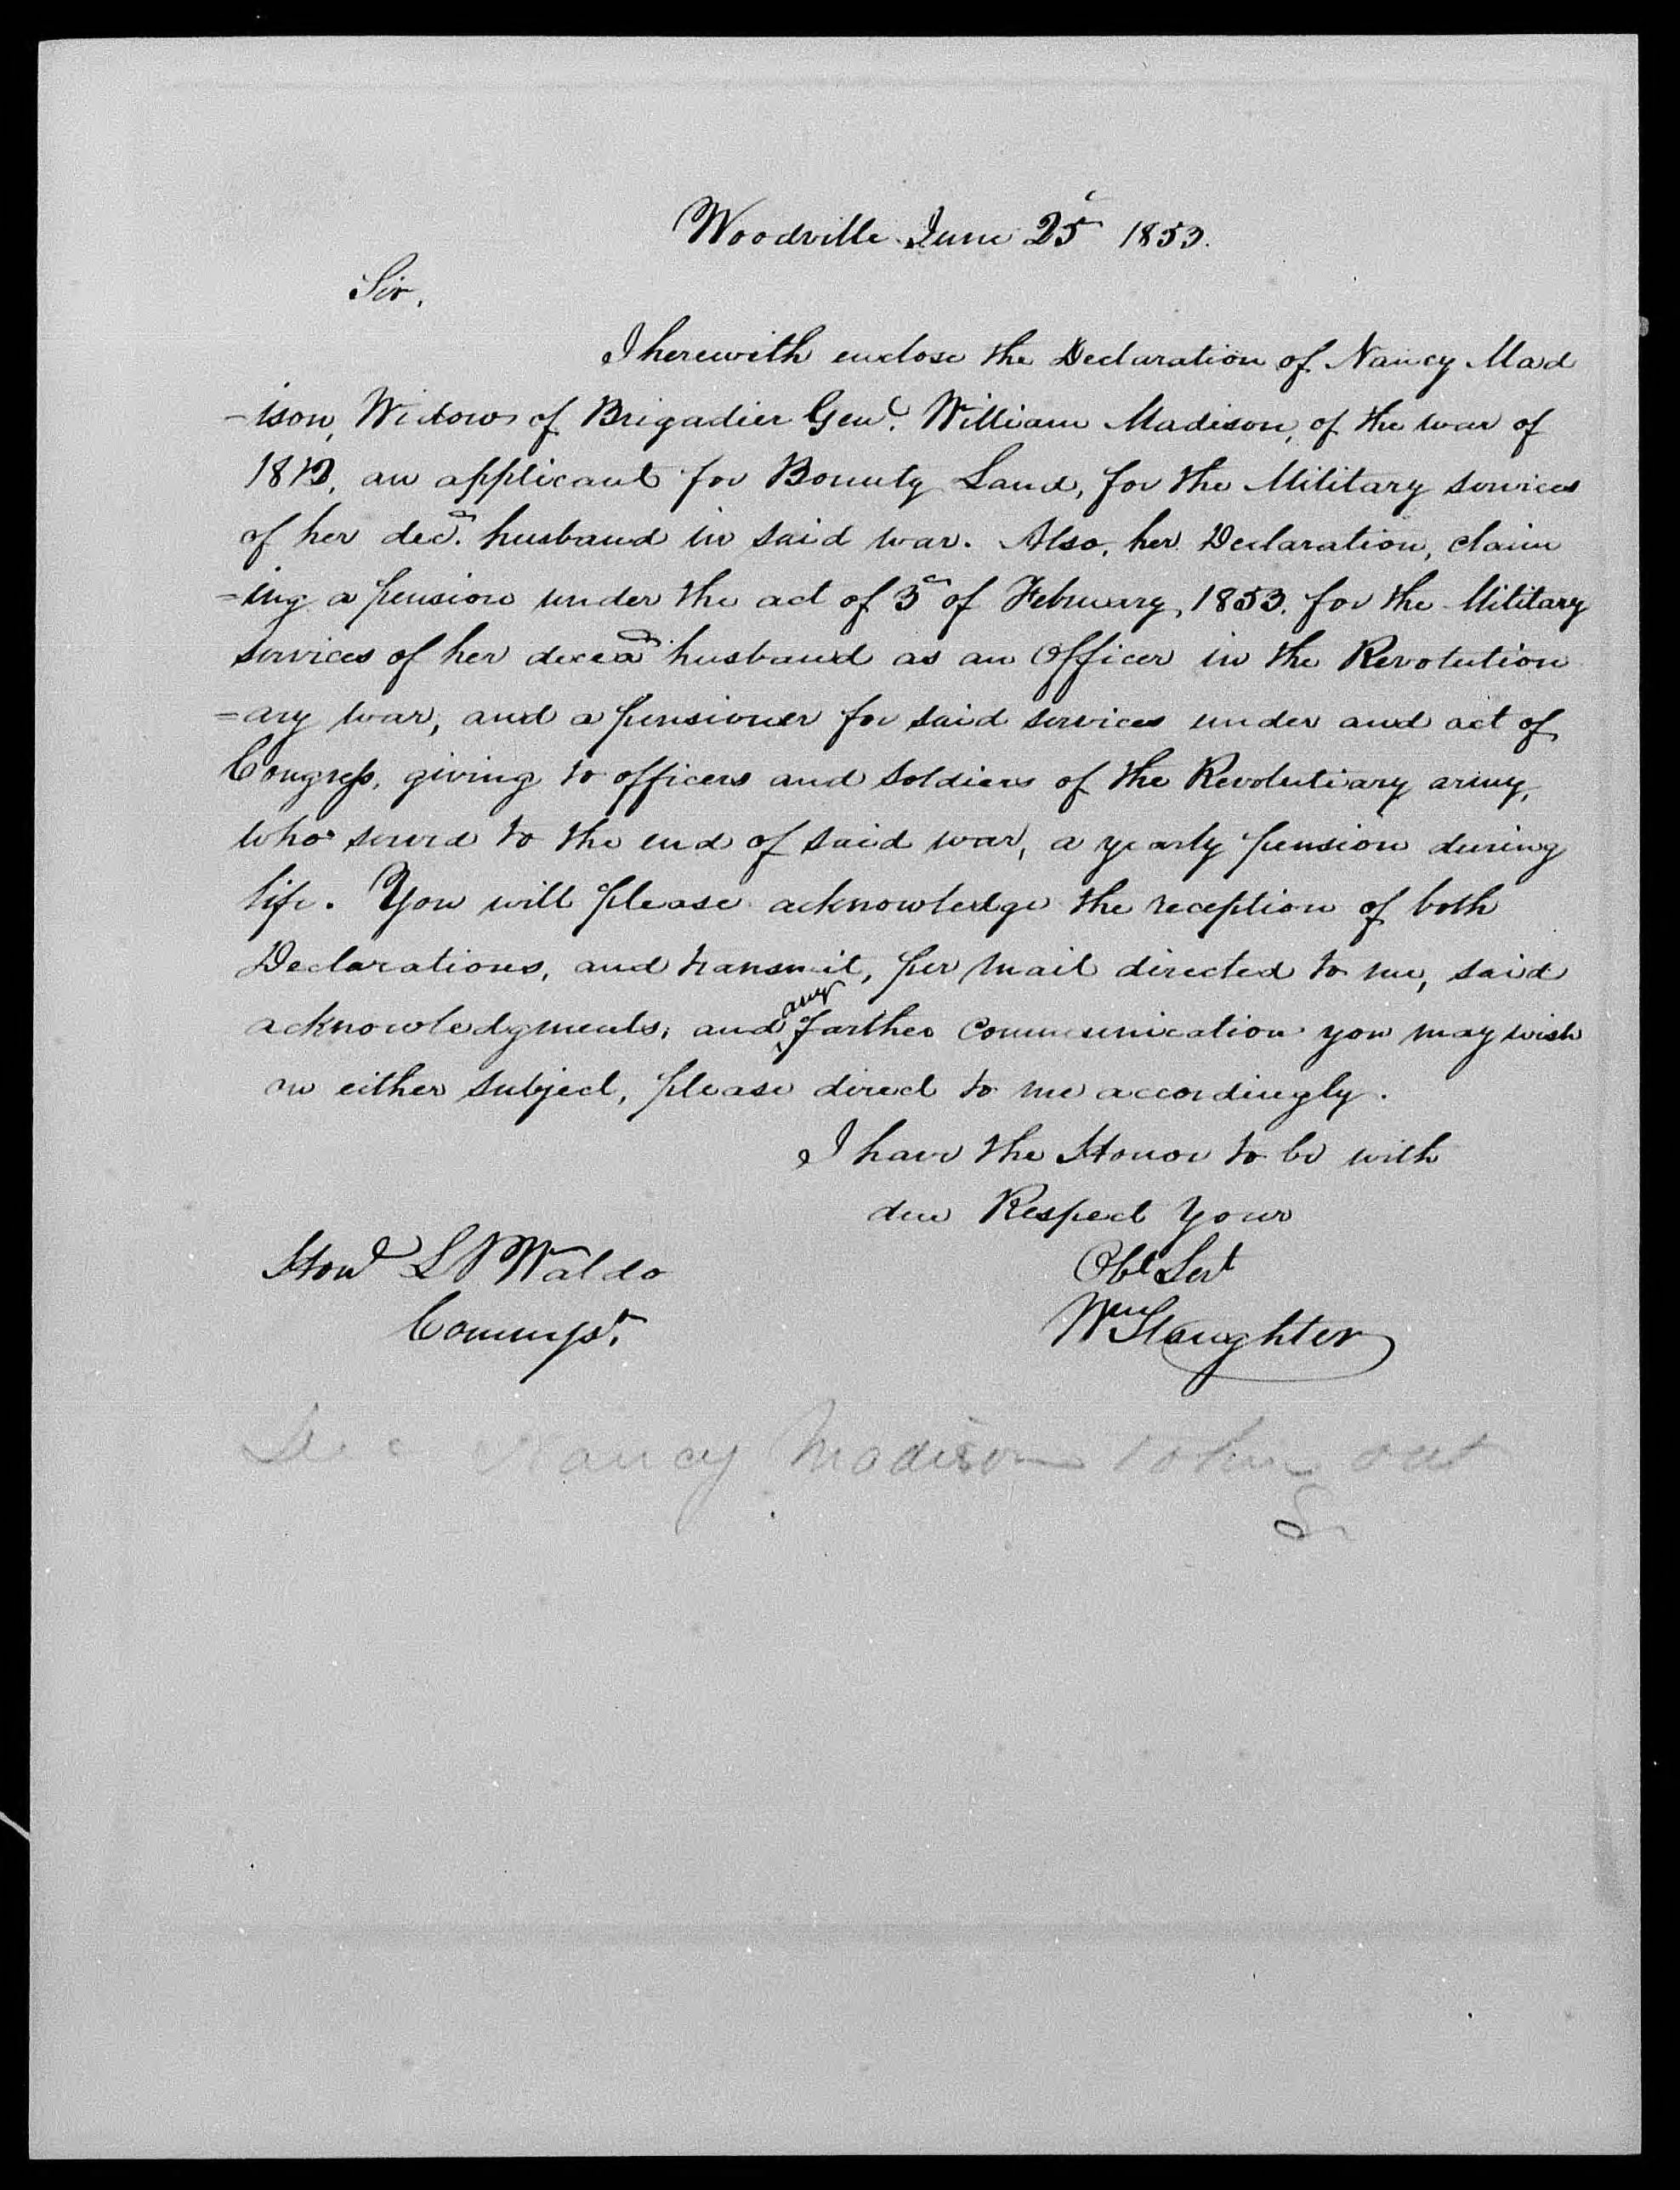 Woodville June 25 1853.
Sir,
I herewith enclose the Declaration of Nancy Mad
-ison, Widow of Brigadier Genl. William Madison, of the war of
1812, an applicant for Bounty Land, for the Military services
of her decd. husband in said war. Also, her Declaration, claim
=ing a pension under the act of 3d of February, 1853. for the Military
services of her decead husband as an Officer in the Revolution
=ary war, and a pensioner for said services under and act of
Congress, giving to officers and soldiers of the Revolutiary army,
who served to the end of said war, a yearly pension during
life. You will please acknowledge the reception of both
Declarations, and transmit, per mail directed to me, said
acknowledgments, and any farther communication you may wish
on either subject, please direct to me accordingly.
I have the Honor to be with
due Respect Your
Obt Sevt
Wm Slaughter
Honl L P Waldo
Commissr.
Dec Nancy Madison taken out